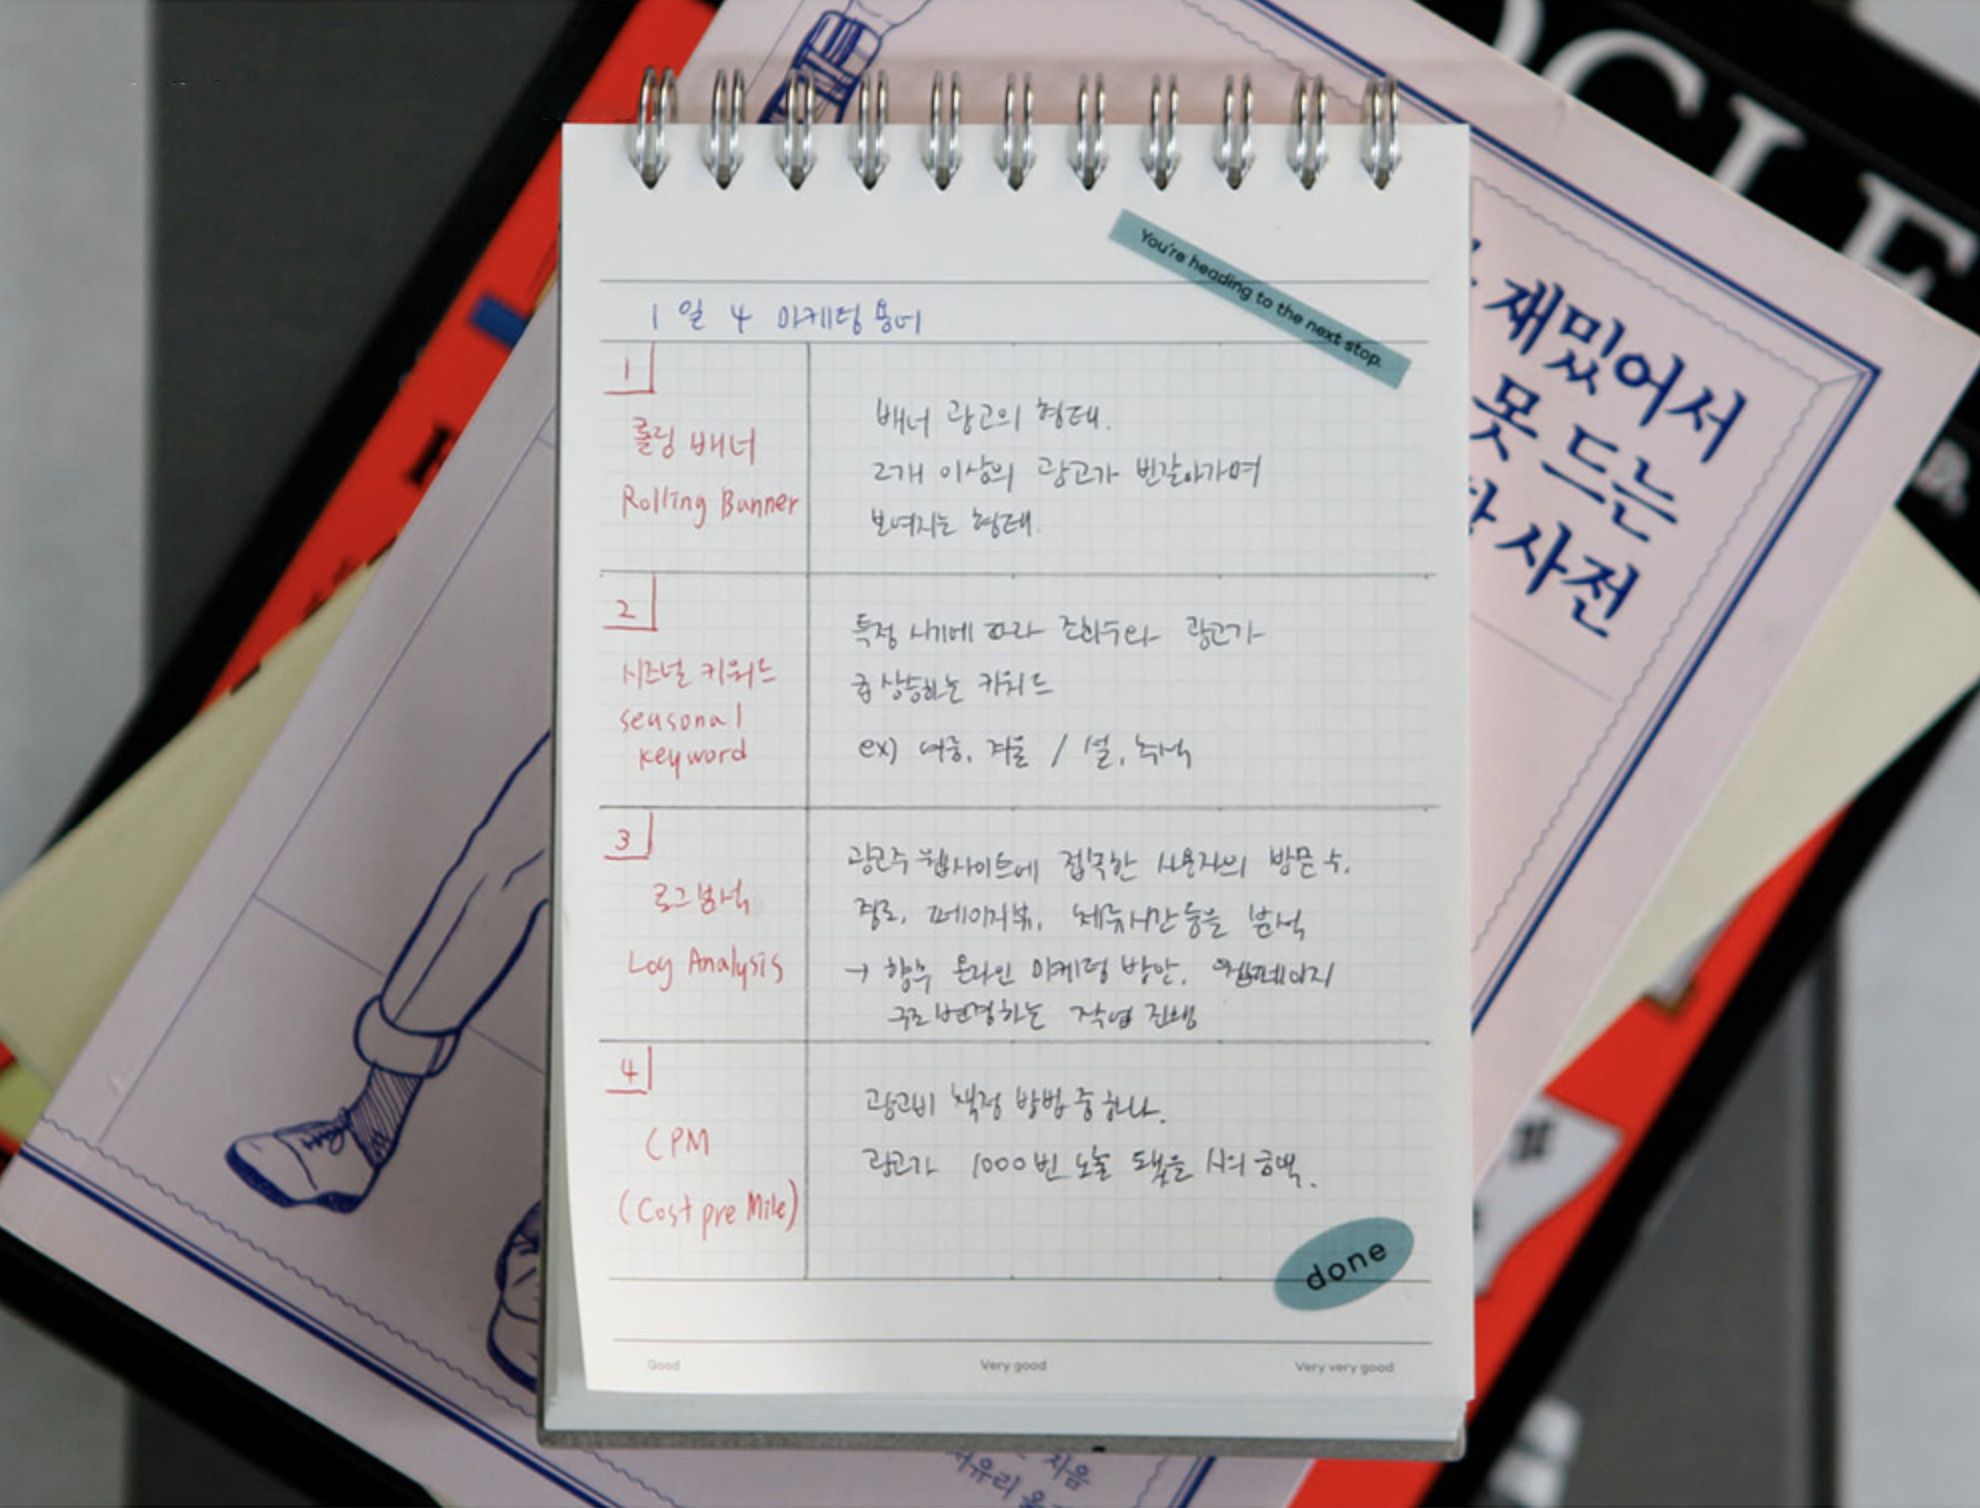 You're heading to the next stop.
1일 4 마케팅 용어
1
롤링 배너
Rolling Banner
배너 광고의 형태.
2개 이상의 광고가 번갈아가며
보여지는 형태.
2
시즈널 키워드
seasonal
keyword
특정 시기에 따라 조회수와 광고가
급상승하는 키워드
ex) 여름, 겨울 / 설, 추석
3
로그분석
Log Analysis
광고주 웹사이트에 접속한 사용자의 방문 수,
경로, 페이지뷰, 체류시간 등을 분석
→ 향후 온라인 마케팅 방안, 웹페이지
구조 변경하는 작업 진행
4
CPM
(Cost pre Mile)
광고비 책정 방법 중 하나.
광고가 1000번 노출 됐을 시의 금액.
done
Good Very good Very very good
재밌어서
못 드는
사전
지음